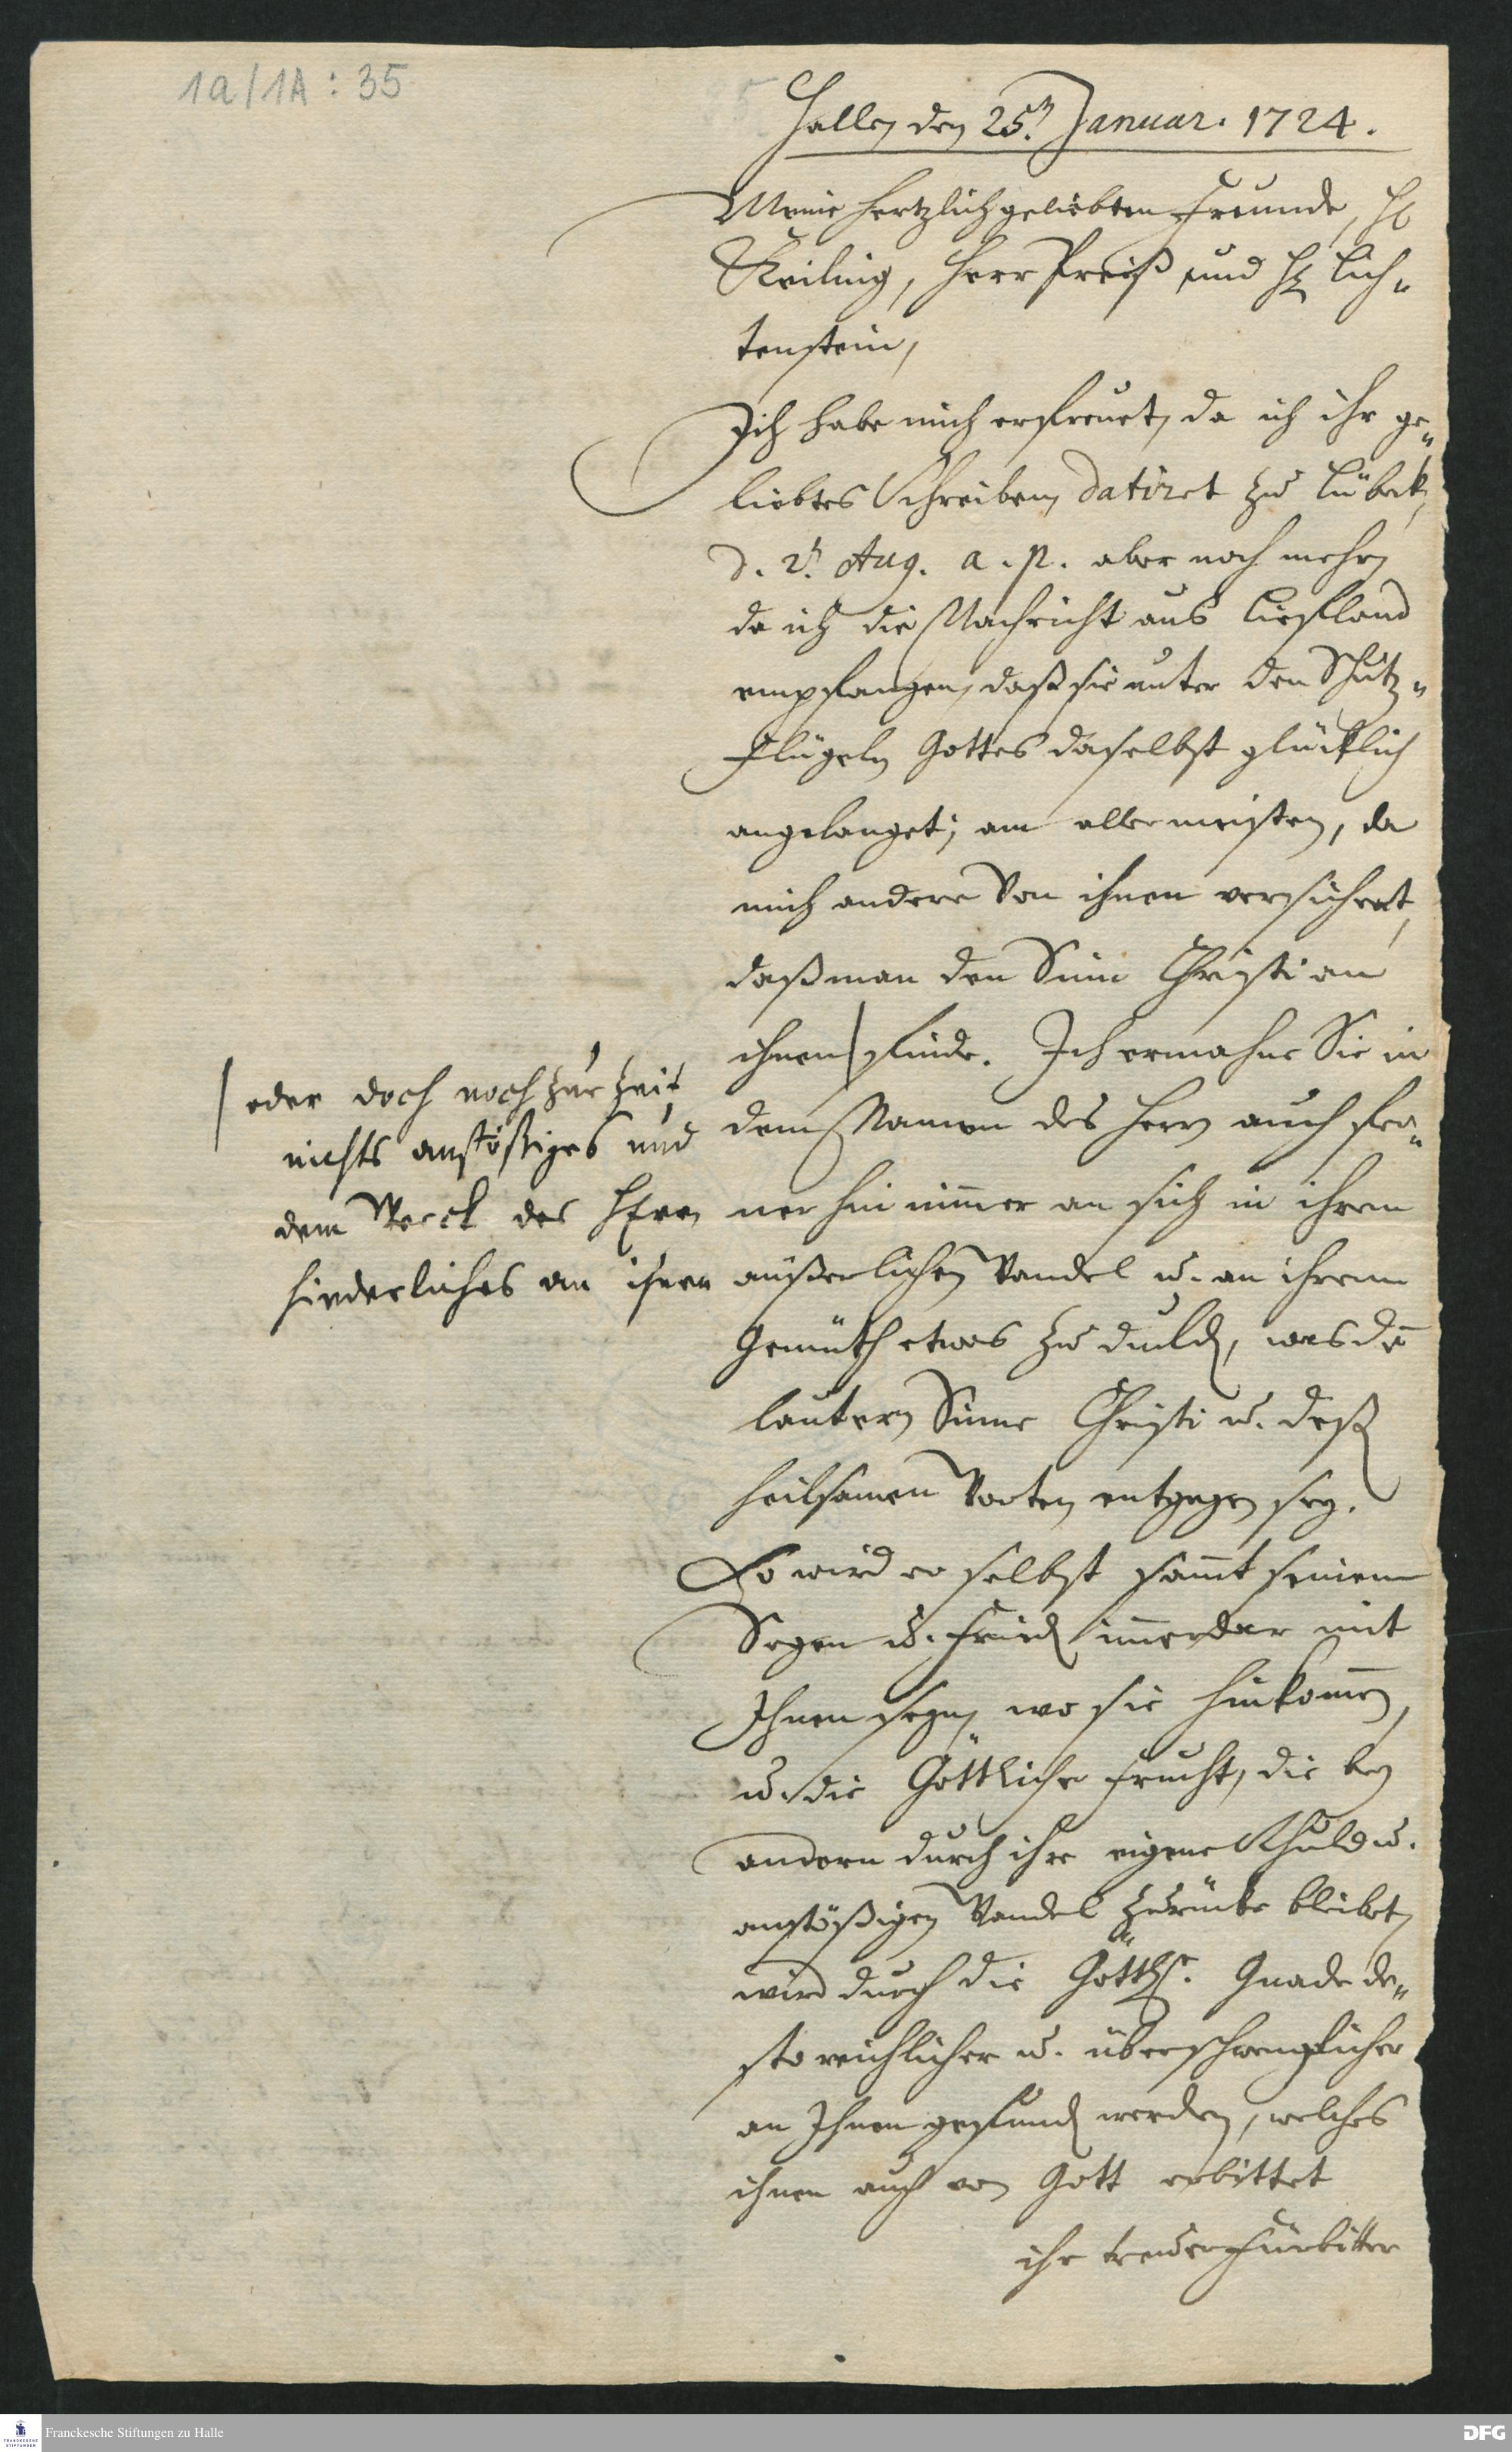 1a/1A : 35
Halle den 25.t Januar. 1724.
Meine hertzlich geliebten Freunde, H
Keiling, Herr Preiß und H Lich-
tenstein,
Ich habe mich erfreuet, da ich ihr ge-
liebtes Schreiben datiret zu Lübeck,
d. 2. Aug. a. p. aber noch mehr,
da ich die Nachricht aus Liefland
empfangen, daß sie unter den Schutz-
Flügeln Gottes daselbst glücklich
angelanget; am allermeisten, da
mich andere von ihnen versichert,
daß man den Sinn Christi an
ihnen finde. Ich ermahne Sie in
dem Namen des Herrn auch fer-
ner hin nimmer an sich in ihrem
äußerlichen Wandel u. an ihrem
Gemüth etwas zu dulden, was dem
lautern Sinne Christi u. deßen
heilsamen Worten entgegen sey.
So wird er selbst sammt seinem
Segen u. Frieden immerdar mit
Ihnen seyn, wo sie hinkommen,
u. die Göttliche Frucht, die bey
andern durch ihre eigene Schuld u.
anstößigen Wandel zurücke bleibet,
wird durch die Göttl. Gnade de-
sto reichlicher u. überschwenglicher
an Ihnen gefunden werden, welches
ihnen auch von Gott erbittet
ihr treuer Fürbitter
oder doch noch zur Zeit
nichts anstößiges und
dem Werck des HErrn
hinderliches an ihnen
Franckesche Stiftungen zu Halle
DFG